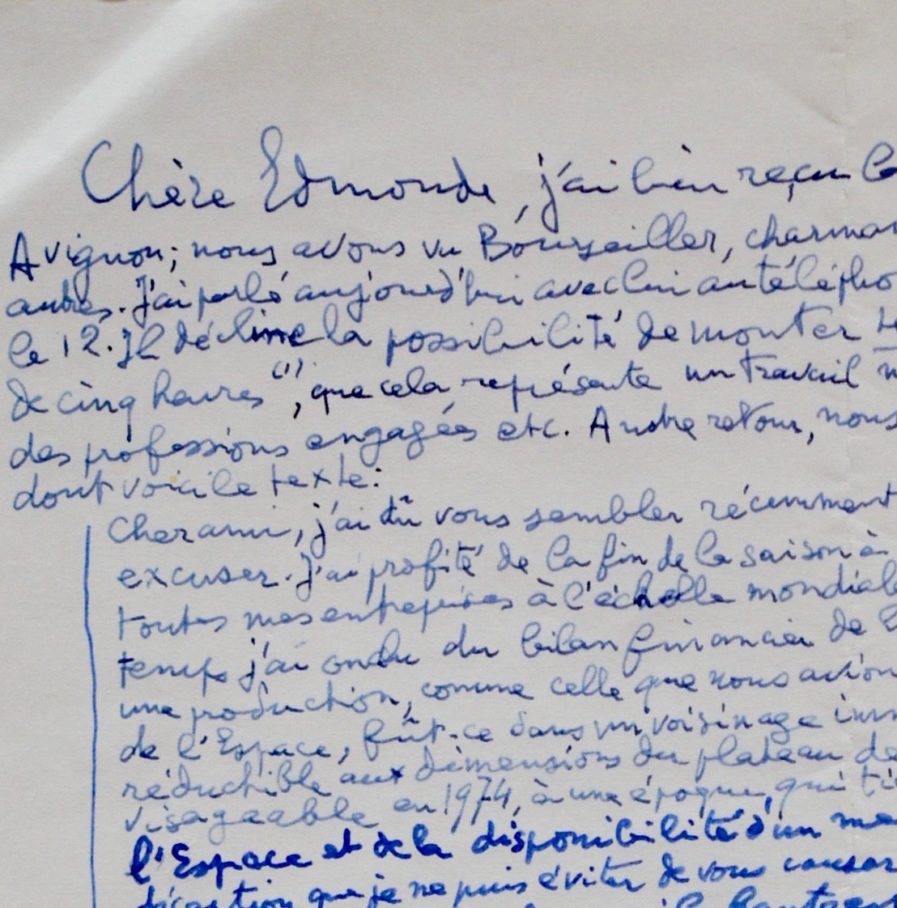 Chère Edmonde, j'ai bien reçu le
Avignon; nous avons vu Bourseiller, charman
autres. J'ai parlé aujourd'hui avec lui au télépho
le 12. Il décline la possibilité de monter
de cinq heures (1), que cela représente un travail
des professions engagées etc. A notre retour, nous
dont voici le texte:
Cher ami, j'ai dû vous sembler récemment
excuser. J'ai profité de la fin de la saison à
toutes mes entreprises à l'échelle mondiale
temps j'ai du bilan financier de
une production, comme celle que nous avion
de l'Espace, fût-ce dans un voisinage
réductible aux dimensions du plateau de
visageable en 1974, à une époque, qui
l'Espace et de la disponibilité d'un
que je ne puis éviter de vous causer